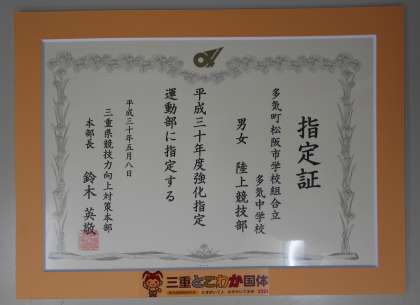 指定証
多気町松阪市学校組合立
多気中学校
男女 陸上競技部
平成三十年度強化指定
運動部に指定する
平成三十年五月八日
三重県競技力向上対策本部
本部長 鈴木 英敬
三重とこわか国体